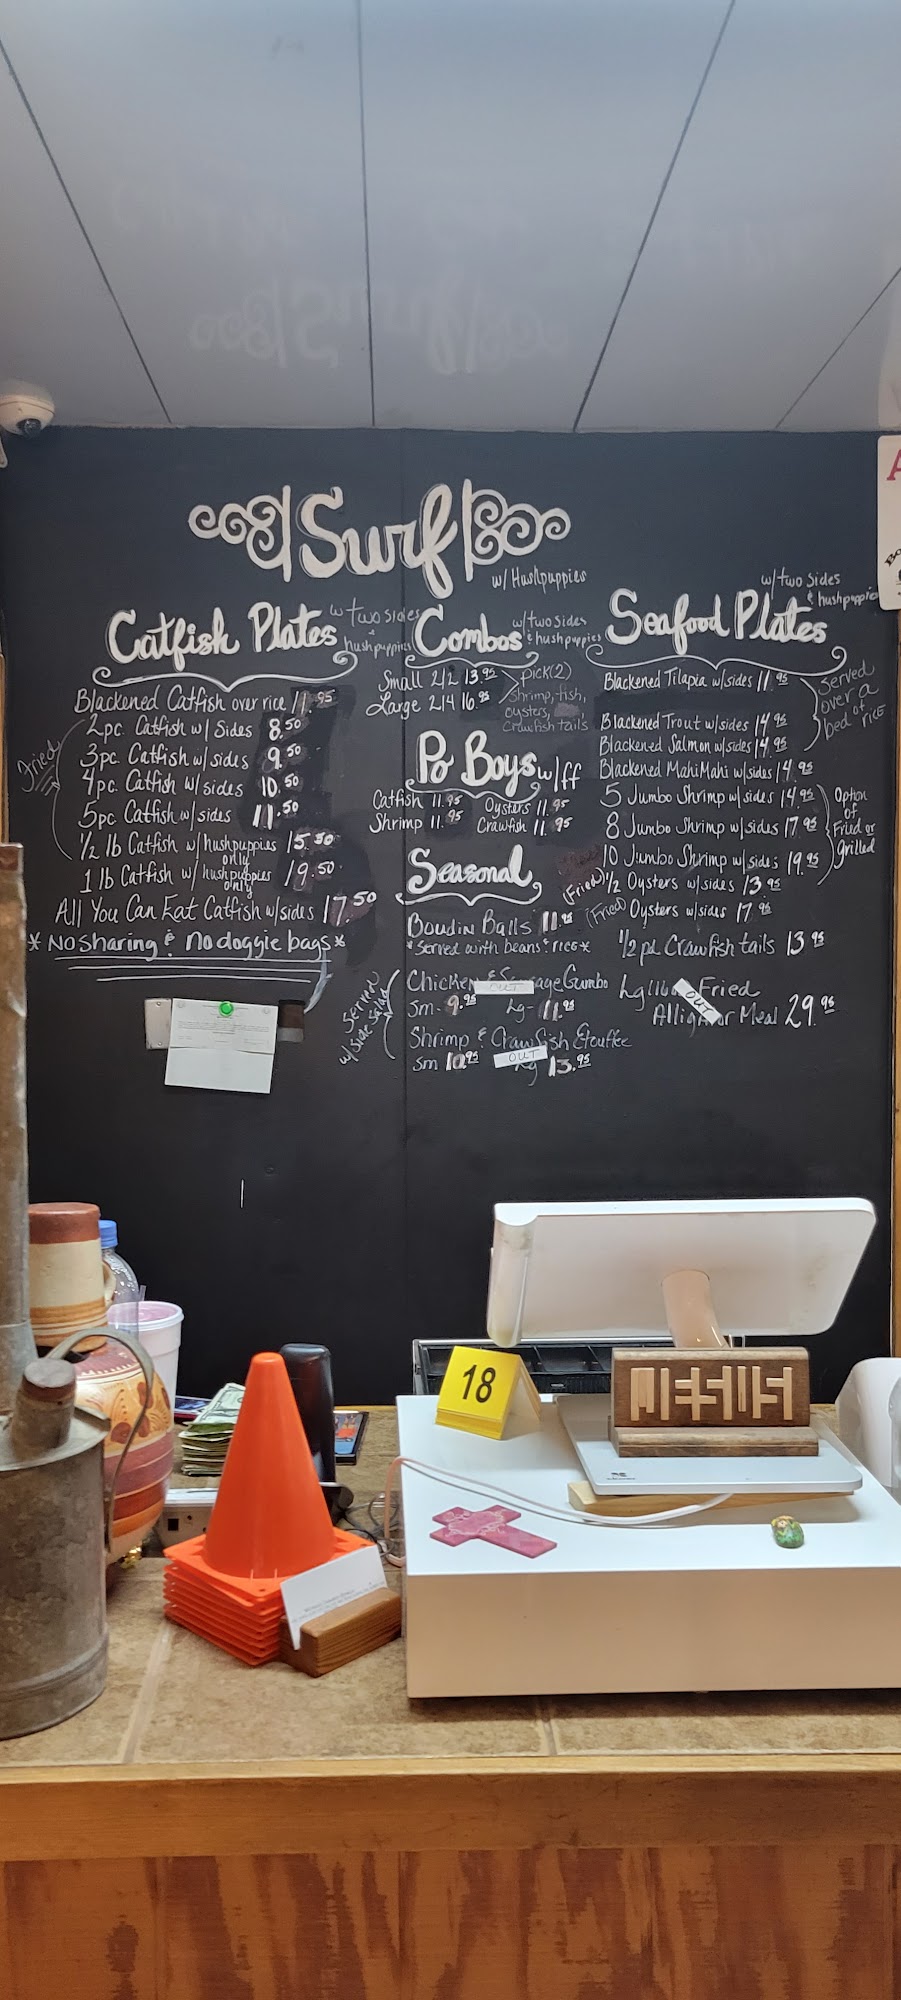 Surf
w/ Hushpuppies
Catfish Plates
w two sides
& hushpuppies
Blackened Catfish over rice 11.95
Fried
2pc. Catfish w/ Sides 8.50
3pc. Catfish w/sides 9.50
4pc. Catfish w/sides 10.50
5pc Catfish w/sides 11.50
1/2 lb Catfish w/ hushpuppies only 15.50
1 lb Catfish w/ hushpuppies only 19.50
All You Can Eat Catfish w/sides 17.50
* No sharing & No doggie bags *
Combos
w/two sides
& hushpuppies
Small 2/2 13.95
Large 2/4 16.95
Pick(2)
shrimp, fish,
oysters,
Crawfish tails
Po Boys w/ff
Catfish 11.95
Oysters 11.95
Shrimp 11.95
Crawfish 11.95
Seasonal
Boudin Balls 11.95
*Served with beans & rice*
Served
w/ side salad
Chicken & Sausage Gumbo
OUT
Sm- 9.95 Lg- 11.95
Shrimp & Crawfish Etouffee
OUT
Sm 10.95 Lg 13.95
Seafood Plates
w/ two sides
& hushpuppies
Blackened Tilapia w/sides 11.95
Blackened Trout w/sides 14.95
Blackened Salmon w/sides 14.95
Served
over a
bed of rice
Blackened Mahi Mahi w/sides 14.95
5 Jumbo Shrimp w/sides 14.95
8 Jumbo Shrimp w/sides 17.95
10 Jumbo Shrimp w/sides 19.95
Option
of
Fried or
Grilled
(Fried) 1/2 Oysters w/sides 13.95
(Fried) Oysters w/sides 17.95
1/2 pd. Crawfish tails 13.95
Fried
Alligator Meal 29.95
OUT
18
JESUS